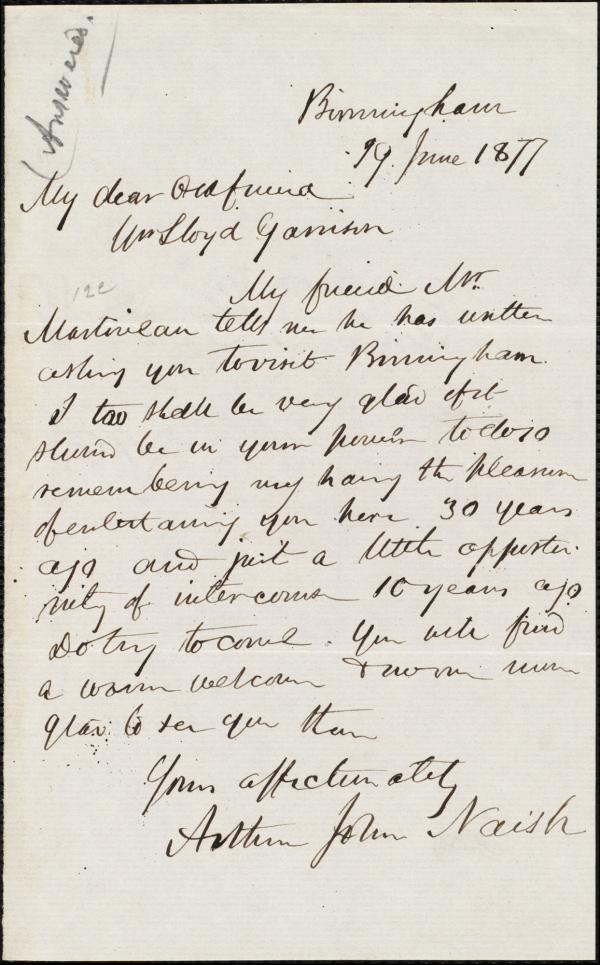 (Answered.
Birmingham
29 June 1877
My dear Old friend
Wm Lloyd Garrison
My friend Mr.
Martineau tells me he has written
asking you to visit Birmingham
I too shall be very glad if it
should be in your power to do so
remembering my having the pleasure
of entertaining you here 30 years
ago and just a little opportu-
nity of intercourse 10 years ago
Do try to come. You will find
a warm welcome & none more
glad to see you than
Yours affectionately
Arthur John Naish